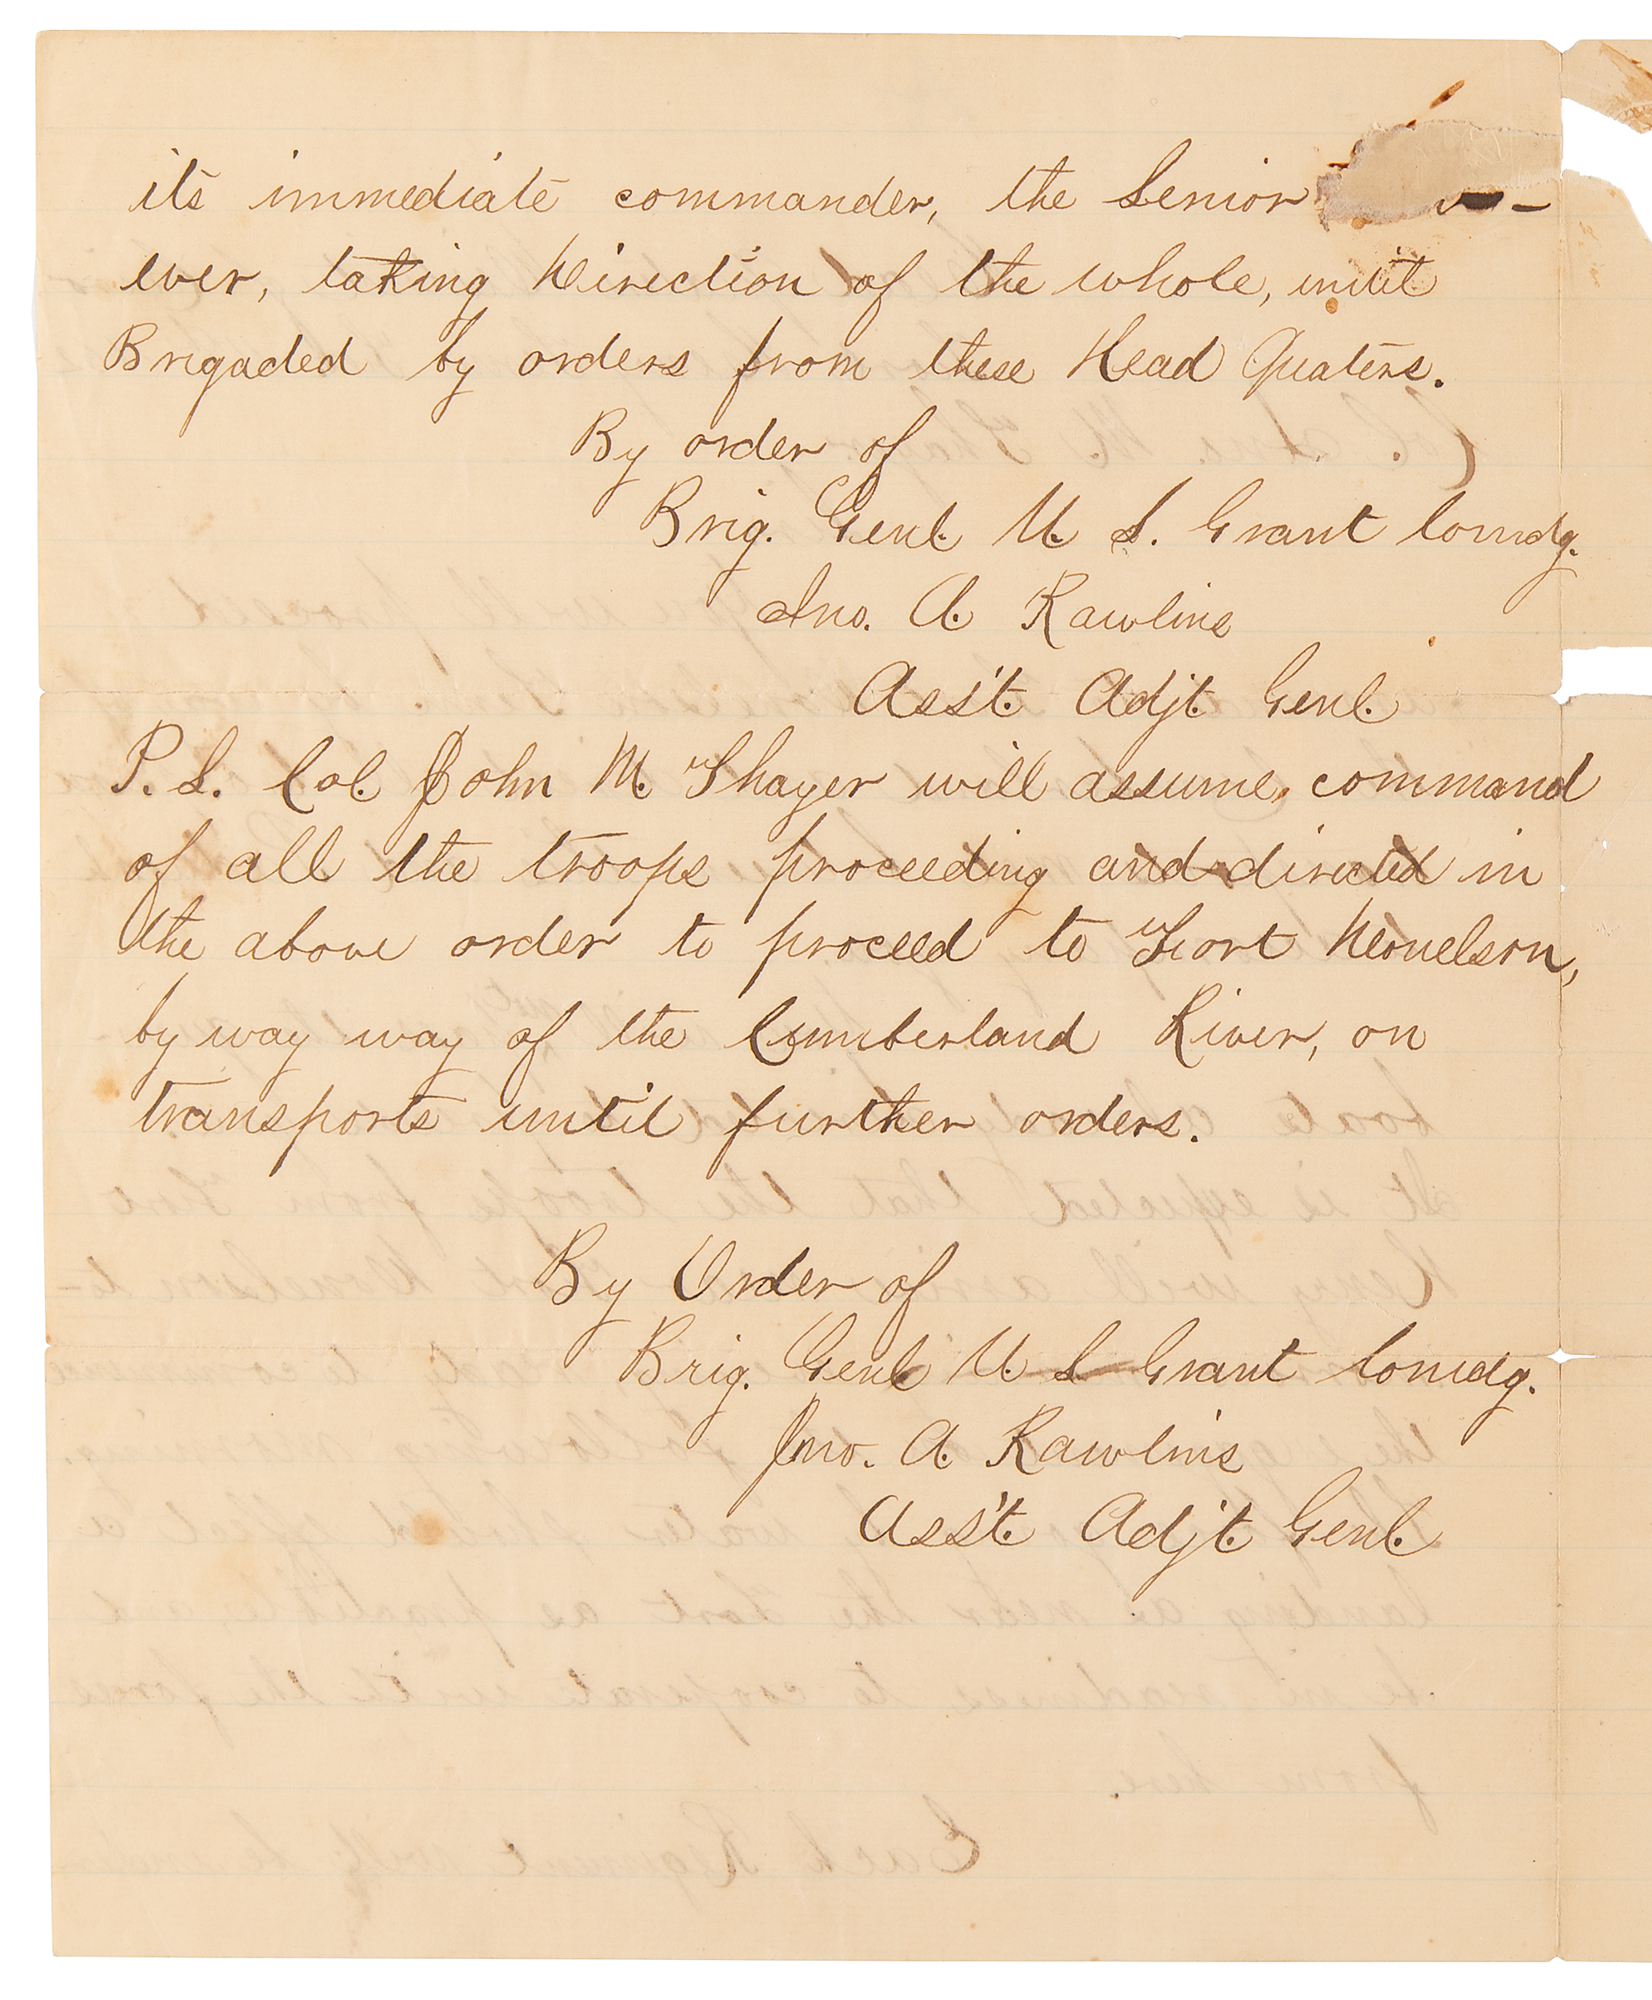 its immediate commander, the Senior
ever, taking Direction of the whole, until
Brigaded by orders from these Head Quaters.
By order of
Brig. Genl. U. S. Grant Comdg.
Jno. A. Rawlins
Ass't. Adjt. Genl.
P.S. Col. John M. Thayer will assume command
of all the troops proceeding and directed in
the above order to proceed to Fort Donelson,
by way way of the Cumberland River, on
transports until further orders.
By Order of
Brig. Genl U S Grant Comdg.
Jno. A. Rawlins
Ass't. Adj't. Genl.